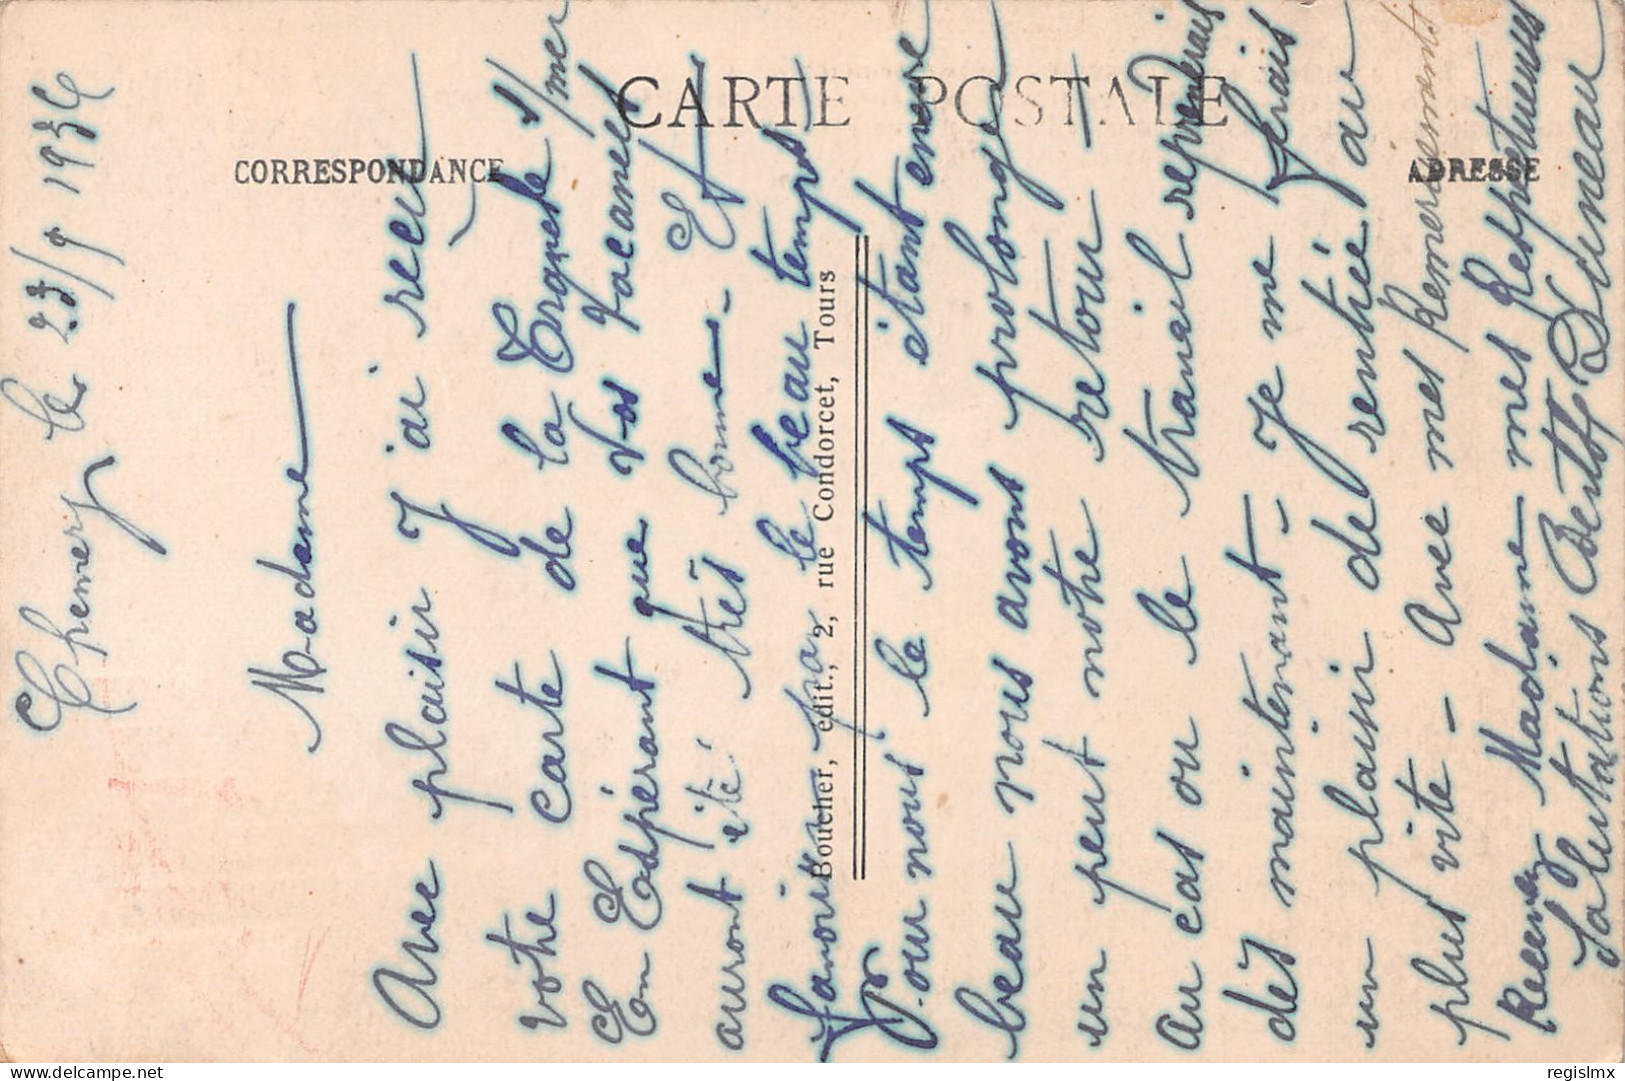 CARTE POSTALE
CORRESPONDANCE
ADRESSE
Boucher, édit., 2, rue Condorcet, Tours
Chemery le 23/9 1936
Madame
Avec plaisir J'ai reçu
votre carte de la Tranche s/mer
En Espérant que vos vacances
auront été très bonnes - Et
favorisé par le beau temps
Pour nous le temps étant encore
beau nous avons prolongé
un peut notre retour -
Au cas ou le travail reprendrais
dès maintenant - Je me ferais
un plaisir de rentrée au
plus vite - Avec mes Remerciements
Recevez Madame mes Respectueuses
Salutations
https://www.delcampe.net
regislmx